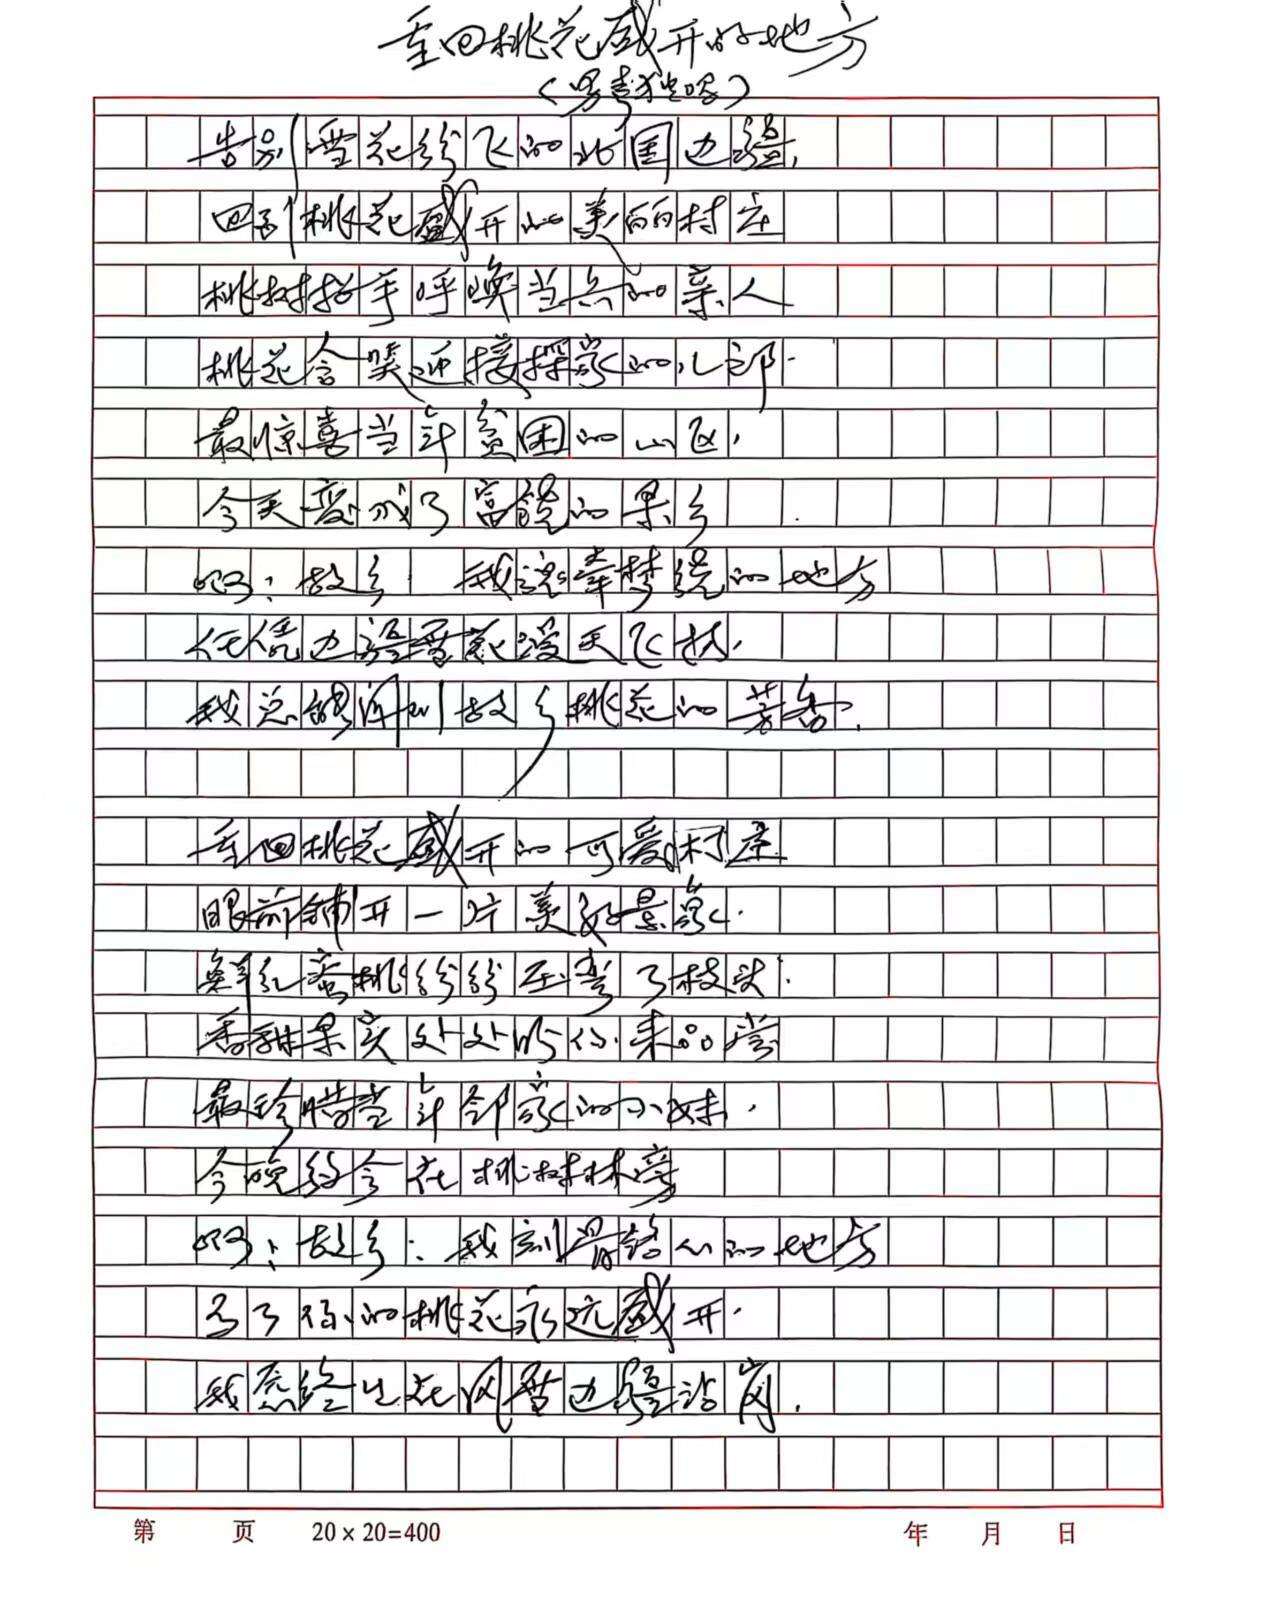 重回桃花盛开的地方
(男声独唱)
告别雪花纷飞的北国边疆,
回到桃花盛开的美丽村庄
桃树招手呼唤当兵的亲人
桃花含笑迎接探家的儿郎.
最惊喜当年贫困的山区,
今天变成了富饶的果乡
啊:故乡 我魂牵梦绕的地方
任凭边疆雪花漫天飞扬,
我总能闻到故乡桃花的芳香,
重回桃花盛开的可爱村庄
眼前铺开一片美好景象.
鲜红蜜桃纷纷压弯了枝头.
香甜果实处处盼你来品尝
最珍惜当年邻家的小妹,
今晚约会在桃树林旁
啊:故乡:我刻骨铭心的地方
为了你的桃花永远盛开.
我愿终生在风雪边疆站岗.
第 页 20×20=400 年 月 日